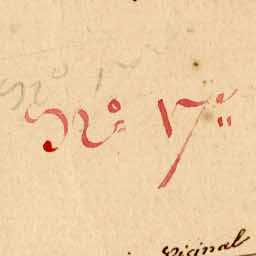 No 17
Original